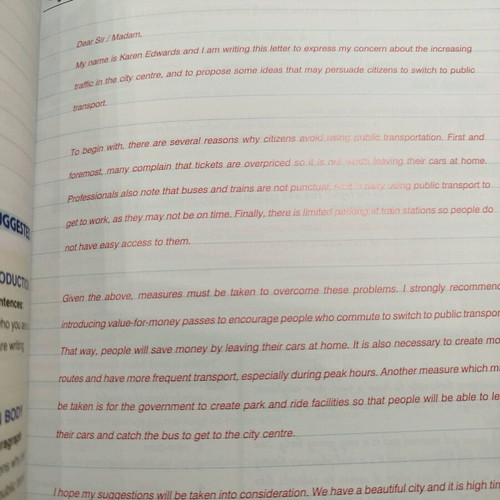 UGGESTE
ODUCTIO
ntences
ho you are
re writing
BODY
aragraph
Dear Sir / Madam,
My name is Karen Edwards and I am writing this letter to express my concern about the increasing
traffic in the city centre, and to propose some ideas that may persuade citizens to switch to public
transport.
To begin with, there are several reasons why citizens avoid using public transportation. First and
foremost, many complain that tickets are overpriced so it is not worth leaving their cars at home.
Professionals also note that buses and trains are not punctual, using public transport to
get to work, as they may not be on time. Finally, there is limited parking at train stations so people do
not have easy access to them.
Given the above, measures must be taken to overcome these problems. I strongly recommend
introducing value-for-money passes to encourage people who commute to switch to public transpor
That way, people will save money by leaving their cars at home. It is also necessary to create mo
routes and have more frequent transport, especially during peak hours. Another measure which mi
be taken is for the government to create park and ride facilities so that people will be able to le
their cars and catch the bus to get to the city centre.
I hope my suggestions will be taken into consideration. We have a beautiful city and it is high tim